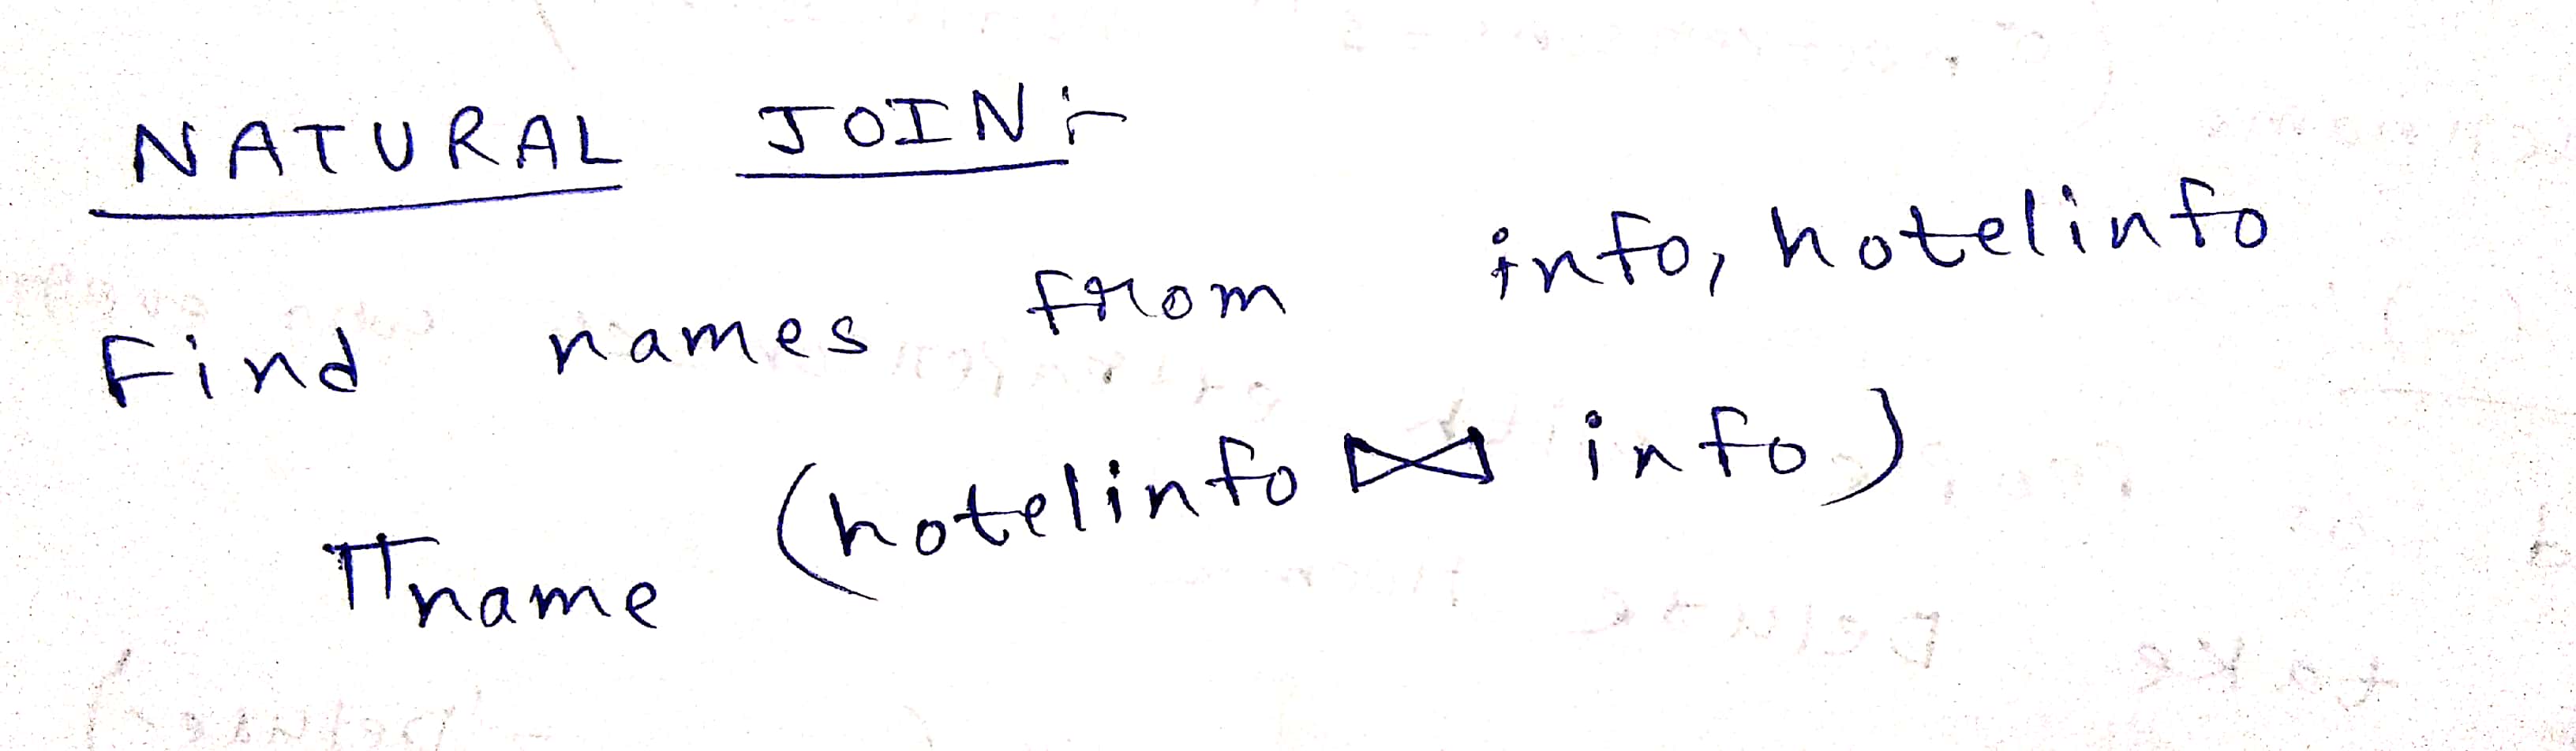 NATURAL JOIN :-
Find names from info, hotelinfo
πname (hotelinfo ⋈ info)